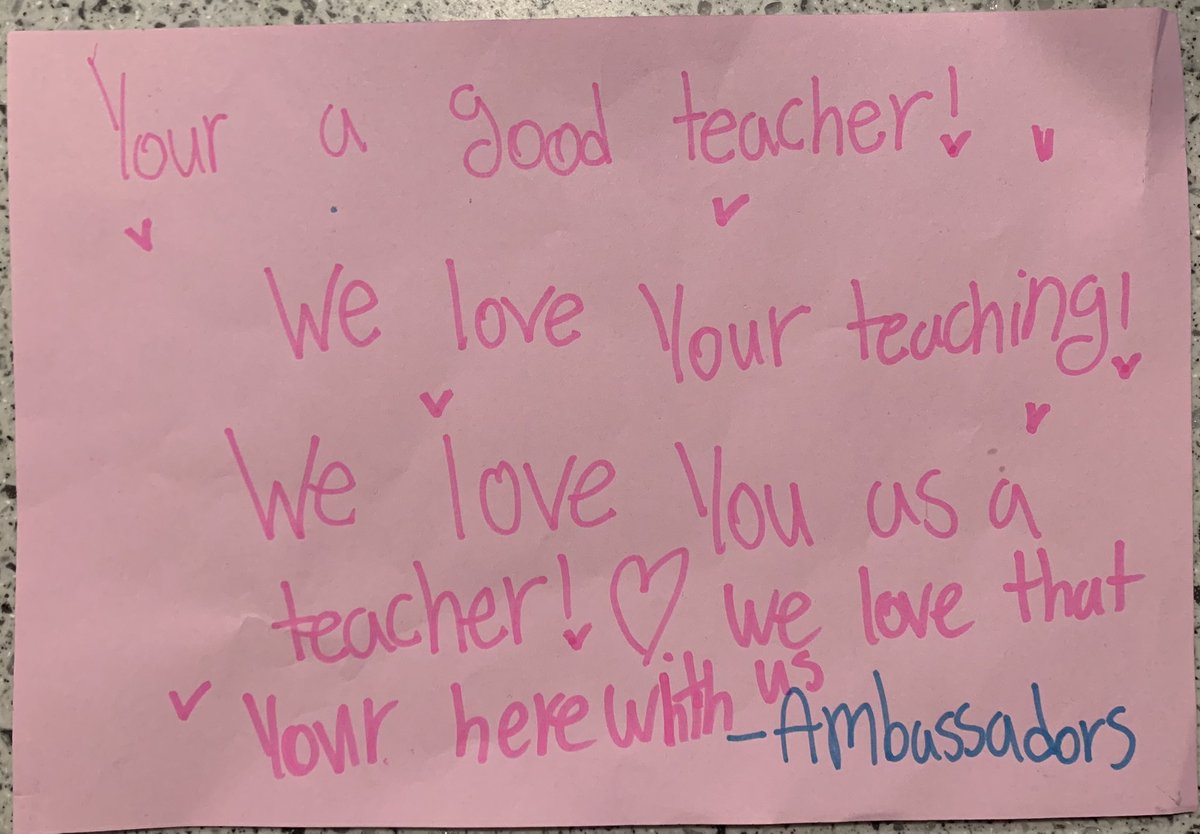 Your a good teacher!
We love Your teaching!
We love You as a
teacher! ♡ we love that
Your here whith us
-Ambassadors